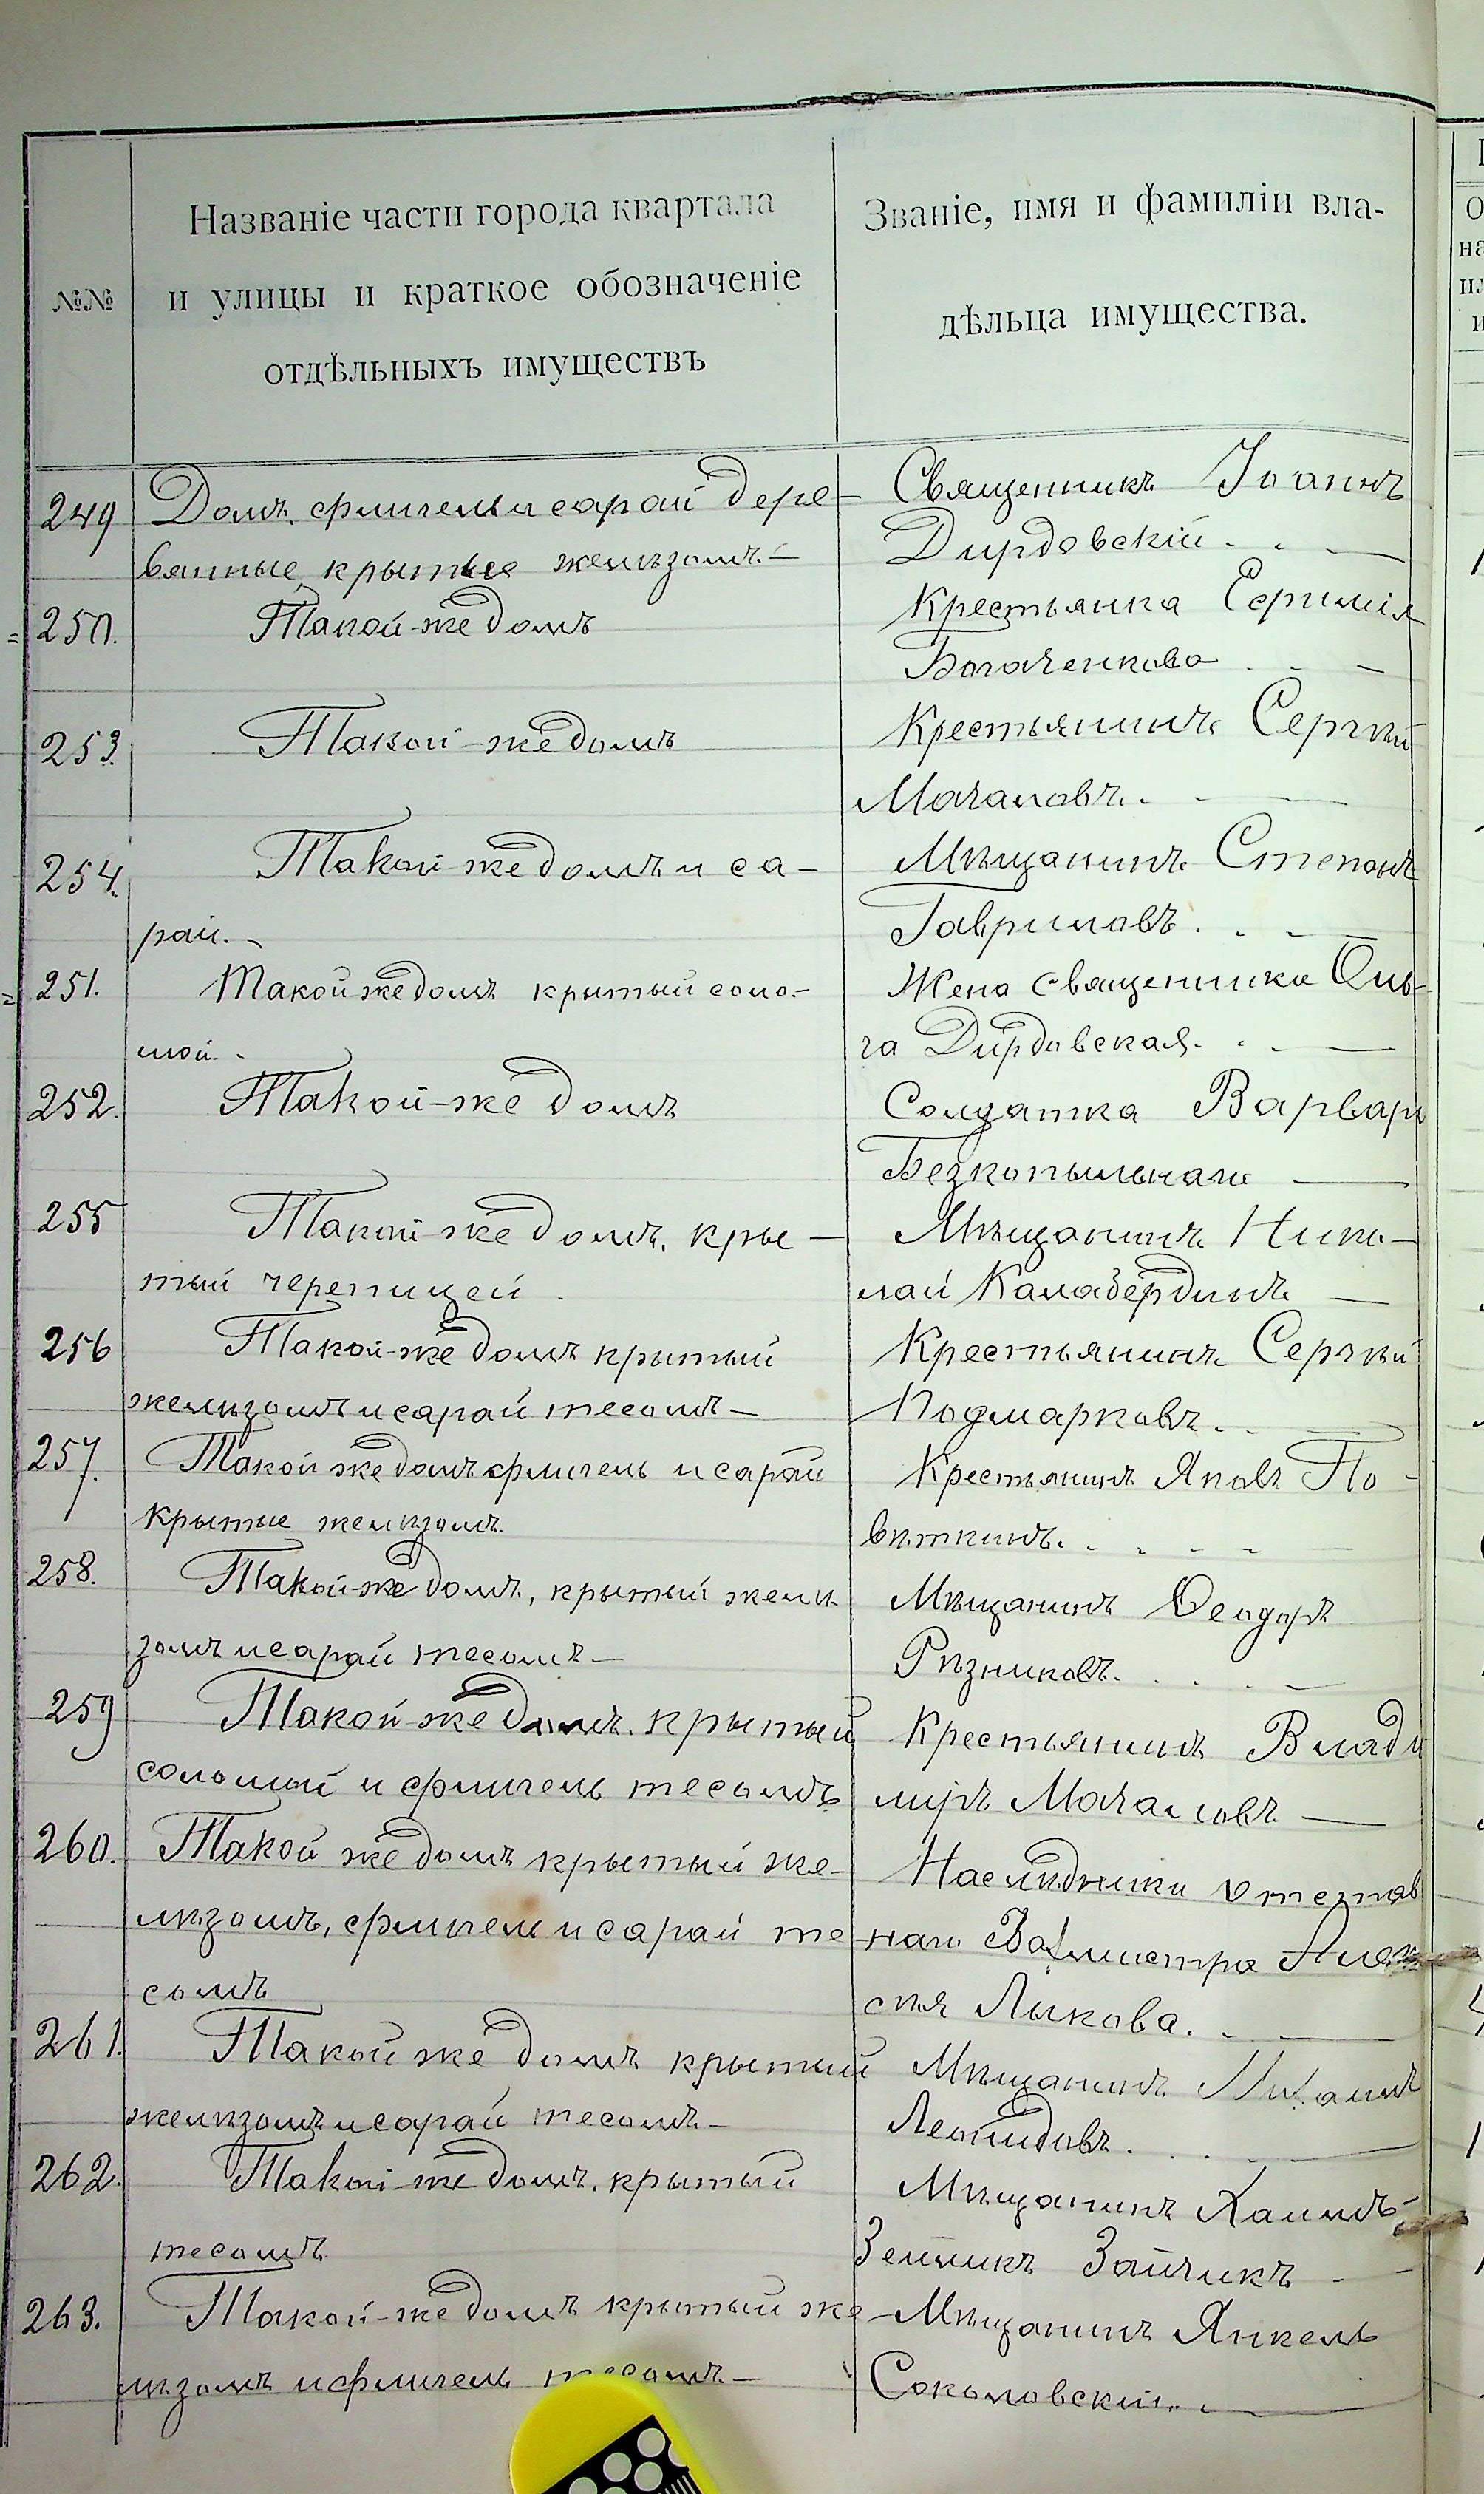 №№
Названіе части города квартала
и улицы и краткое обозначеніе
отдѣльныхъ имуществъ
Званіе, имя и фамиліи вла-
дѣльца имущества.
249 Домъ, флигель и сарай дере- Священникъ Іоаннъ
вянные крытые желѣзомъ.- Дирдовскій. . . -
250. Такой-же домъ Крестьянка
Богаченкова . . -
253. Такой-же домъ Крестьянинъ Сергѣй
Мочаловъ. . - -
254. Такой-же домъ и са- Мѣщанинъ Степанъ
рай. - Гавриловъ . . -
251. Такой же домъ крытый соло- Жена священника Оль-
мой. - га Дирдовская. . . -
252. Такой-же домъ Солдатка Варвара
Безкопыльная -
255 Такой-же домъ, кры- Мѣщанинъ Нико-
тый черепицей . лай Калабердинъ -
256 Такой-же домъ крытый Крестьянинъ Сергѣй
желѣзомъ и сарай тесомъ - Подмарковъ. . -
257. Такой же домъ флигель и сарай Крестьянинъ Яковъ По-
крытые желѣзомъ. вѣткинъ. . . . -
258. Такой-же домъ, крытый желѣ- Мѣщанинъ Ѳеодоръ
зомъ и сарай тесомъ - Рѣзниковъ. . . . -
259 Такой-же домъ. крытый Крестьянинъ Влади
соломой и флигель тесомъ миръ Мочаловъ -
260. Такой же домъ крытый же- Наслѣдники отстав
лѣзомъ, флигель и сарай те- наго Вахмистра
сомъ Лыкова. . -
261. Такой же домъ крытый Мѣщанинъ Михаилъ
желѣзомъ и сарай тесомъ - Леонидовъ. . . . -
262. Такой-же домъ, крытый Мѣщанинъ Хаимъ-
тесомъ Зеликъ Зайчикъ - -
263. Такой-же домъ крытый же- Мѣщанинъ Янкель
лѣзомъ и флигель тесомъ - Соколовскій. . -